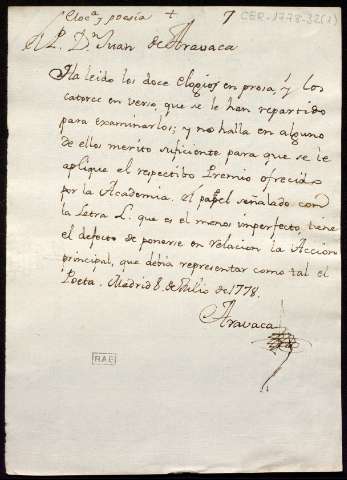 Eloc.ª y poesia + 7 CER-1778-32(1)
El P. D.n Juan de Aravaca
Ha leido los doce Elogios en prosa, y los
catorce en verso, que se le han repartido
para examinarlos; y no halla en alguno
de ellos merito suficiente para que se le
aplique el respectibo Premio ofrecido
por la Academia. El papel señalado con
la Letra L. que es el menos imperfecto, tiene
el defecto de ponerse en relacion la Accion
principal, que debia representar como tal el
Poeta. Madrid 8 de Julio de 1778.
Aravaca
RAE